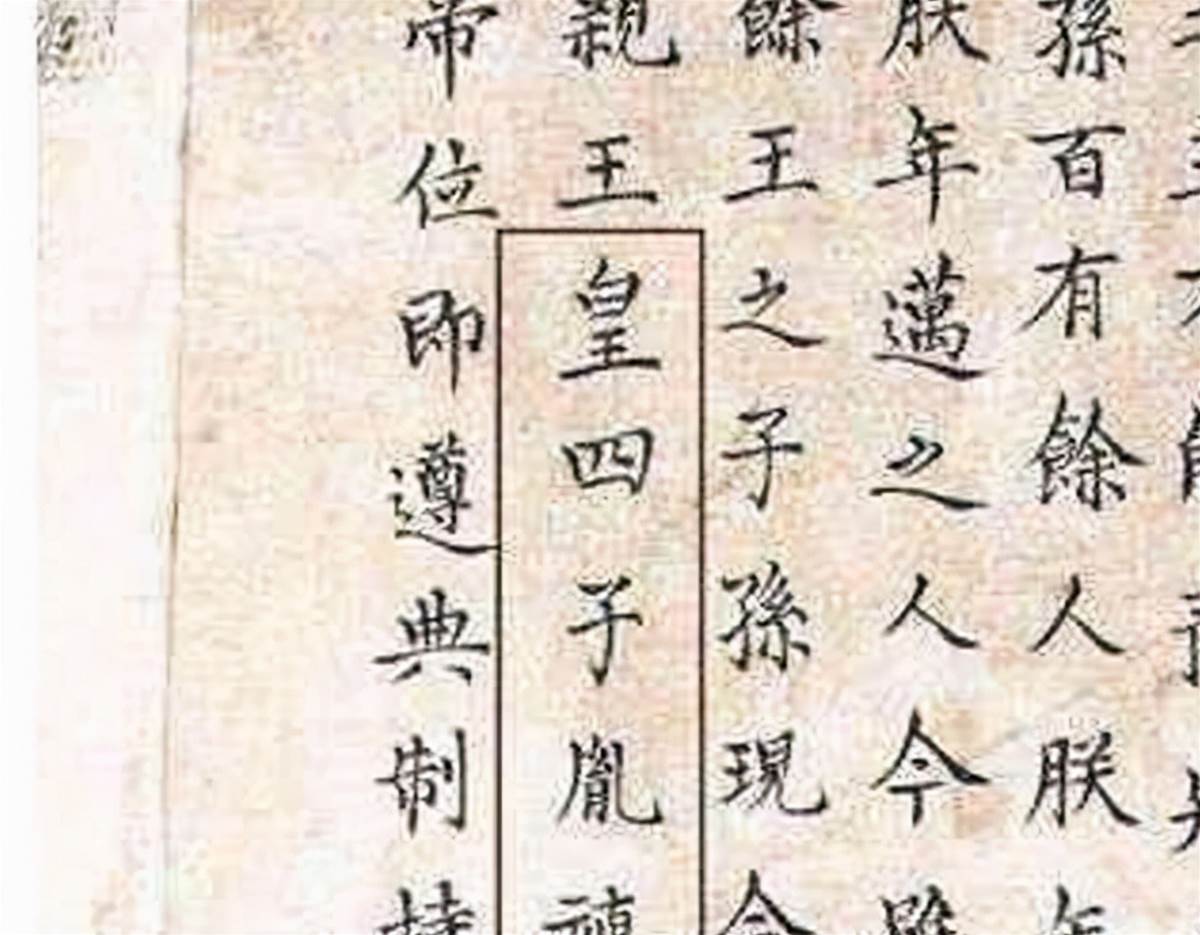 孫百有餘人朕年
朕年邁之人今雖
餘王之子孫現今
親王皇四子胤禛
帝位即遵典制持